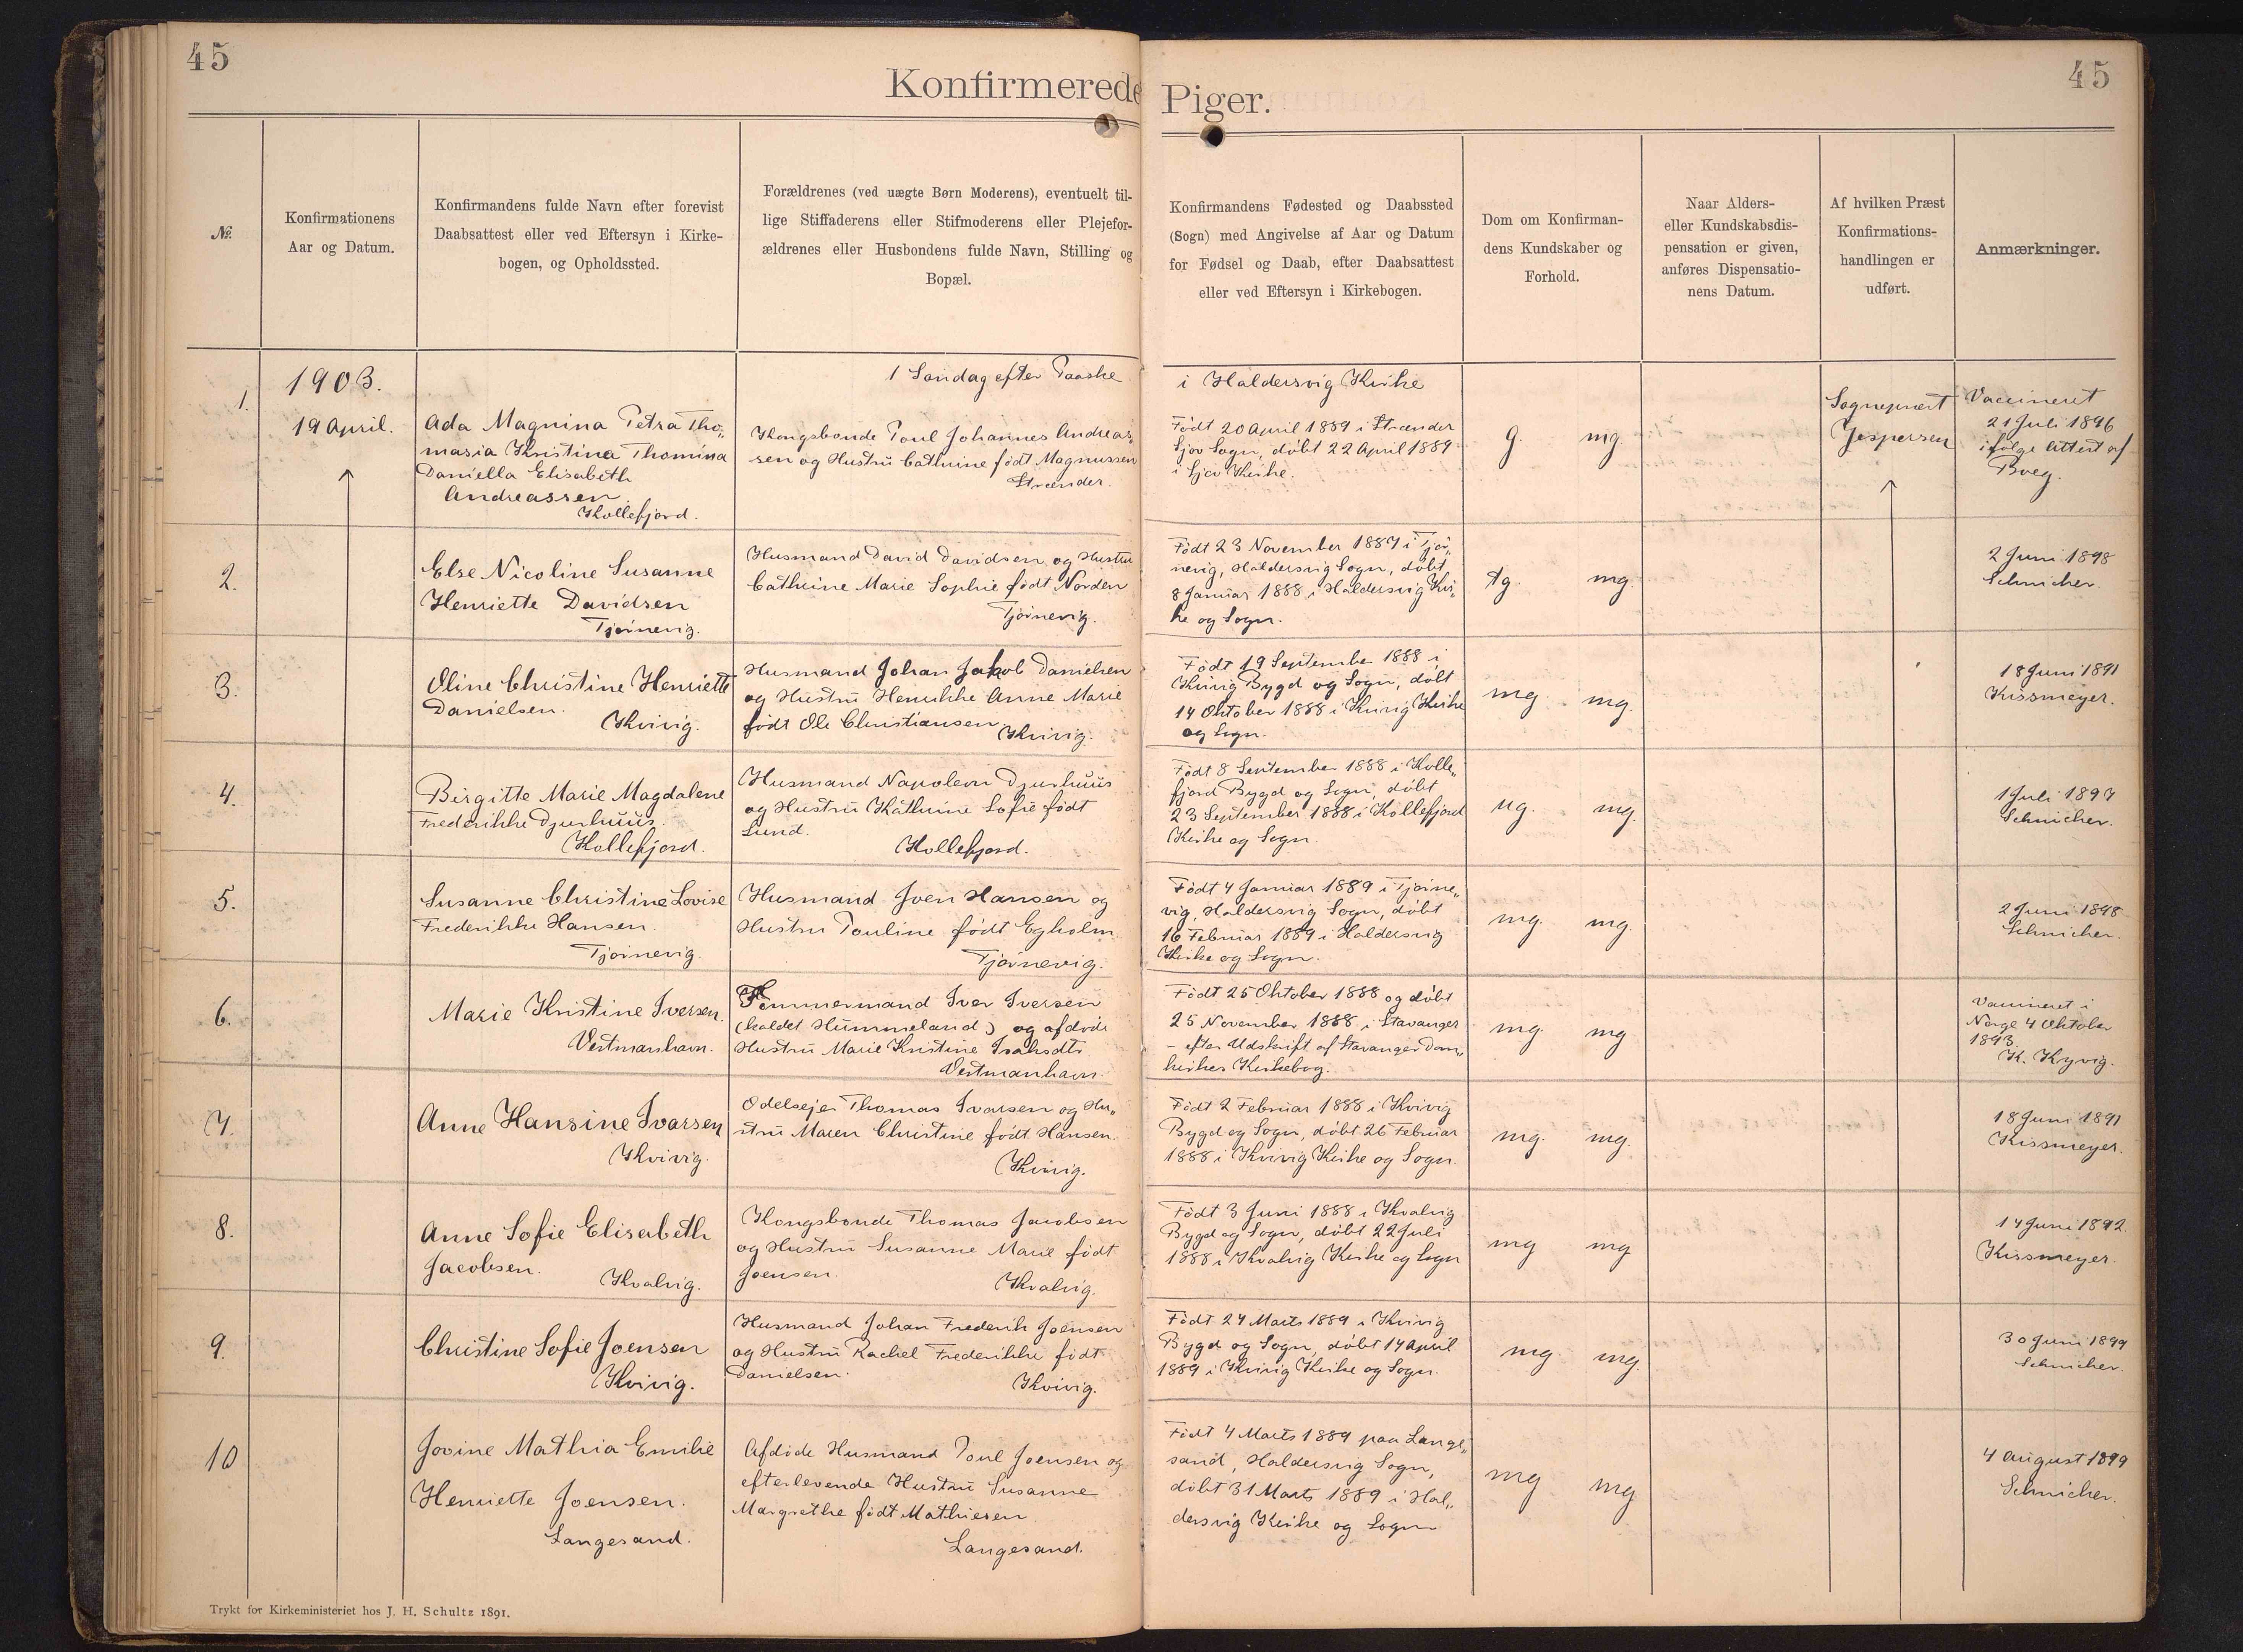 45
45
Konfirmerede Piger.
№.
Konfirmationens
Aar og Datum.
Konfirmandens fulde Navn efter forevist
Daabsattest eller ved Eftersyn i Kirke-
bogen, og Opholdssted.
Forældrenes (ved uægte Børn Moderens), eventuelt til-
lige Stiffaderens eller Stifmoderens eller Plejefor-
ældrenes eller Husbondens fulde Navn, Stilling og
Bopæl.
Konfirmandens Fødested og Daabssted
(Sogn) med Angivelse af Aar og Datum
for Fødsel og Daab, efter Daabsattest
eller ved Eftersyn i Kirkebogen.
Dom om Konfirman-
dens Kundskaber og
Forhold.
Naar Alders-
eller Kundskabsdis-
pensation er given,
anføres Dispensatio-
nens Datum.
Af hvilken Præst
Konfirmations-
handlingen er
udført.
Anmærkninger.
1903.
1 Søndag efter Paaske i Haldersvig Kirke
1.
19 April.
Ada Magnina Petra Tho„
masia Kristina Thomina
Daniella Elisabeth
Andreassen
Kollefjord.
Kongsbonde Poul Johannes Andreas„
sen og Hustru Cathrine født Magnussen
Strænder.
Født 20 April 1889 i Strænder
Sjov Sogn, døbt 22 April 1889
i Sjov Kirke.
g. mg
Sognepræst
Jespersen
Vaccineret
21 Juli 1896
ifølge Attest af
Bueg.
2.
Else Nicoline Susanne
Henriette Davidsen
Tjørnevig.
Husmand David Davidsen og Hustru
Cathrine Marie Sophie født Norden
Tjørnevig.
Født 23 November 1887 i Tjør„
nevig, Haldersvig Sogn, døbt
8 Januar 1888 i Haldersvig Kir„
ke og Sogn.
tg. mg.
2 Juni 1898
Schnicher.
3.
Oline Christine Henriette
Danielsen.
Kvivig.
Husmand Johan Jakob Danielsen
og Hustru Henrikke Anne Marie
født Ole Christiansen
Kvivig.
Født 19 September 1888 i
Kvivig Bygd og Sogn, døbt
14 Oktober 1888 i Kvivig Kirke
og Sogn.
mg mg.
18 Juni 1891
Kissmeyer.
4.
Birgitte Marie Magdalene
Frederikke Djurhuus.
Kollefjord.
Husmand Napoleon Djurhuus
og Hustru Kathrine Sofie født
Lund.
Kollefjord.
Født 8 September 1888 i Kolle„
fjord Bygd og Sogn, døbt
23 September 1888 i Kollefjord
Kirke og Sogn
ug. mg.
1 Juli 1897
Schnicher.
5.
Susanne Christine Lovise
Frederikke Hansen.
Tjørnevig.
Husmand Joen Hansen og
Hustru Pouline født Egholm
Tjørnevig.
Født 4 Januar 1889 i Tjørne„
vig, Haldersvig Sogn, døbt
16 Februar 1889 i Haldersvig
Kirke og Sogn.
mg. mg.
2 Juni 1898
Schnicher.
6.
Marie Kristine Iversen.
Vestmanhavn.
Tømmermand Iver Iversen
(kaldet Hummeland) og afdøde
Hustru Marie Kristine Isaksdtr
Vestmanhavn
Født 25 Oktober 1888 og døbt
25 November 1888 i Stavanger
– efter Udskrift af Stavanger Dom„
kirkes Kirkebog.
mg. mg
Vaccineret i
Norge 4 Oktober
1893.
K. Kyvig.
7.
Anne Hansine Ivarsen
Kvivig.
Odelsejer Thomas Ivarsen og Hu„
stru Maren Christine født Hansen.
Kvivig.
Født 2 Februar 1888 i Kvivig
Bygd og Sogn, døbt 26 Februar
1888 i Kvivig Kirke og Sogn.
mg. mg.
18 Juni 1891
Kissmeyer.
8.
Anne Sofie Elisabeth
Jacobsen.
Kvalvig.
Kongsbonde Thomas Jacobsen
og Hustru Susanne Marie født
Joensen.
Kvalvig.
Født 3 Juni 1888 i Kvalvig
Bygd og Sogn, døbt 22 Juli
1888 i Kvalvig Kirke og Sogn
mg mg
14 Juni 1892.
Kissmeyer.
9.
Christine Sofie Joensen
Kvivig.
Husmand Johan Frederik Joensen
og Hustru Rachel Frederikke født
Danielsen.
Kvivig.
Født 24 Marts 1889 i Kvivig
Bygd og Sogn, døbt 14 April
1889 i Kvivig Kirke og Sogn.
mg. mg.
30 Juni 1899
Schnicher.
10
Jovine Mathia Emilie
Henriette Joensen.
Langesand.
Afdøde Husmand Poul Joensen og
efterlevende Hustru Susanne
Margrethe født Mathiesen
Langesand.
Født 4 Marts 1889 paa Lange„
sand, Haldersvig Sogn,
døbt 31 Marts 1889 i Hal„
dersvig Kirke og Sogn
mg mg
4 August 1899
Schnicher.
Trykt for Kirkeministeriet hos J. H. Schultz 1891.